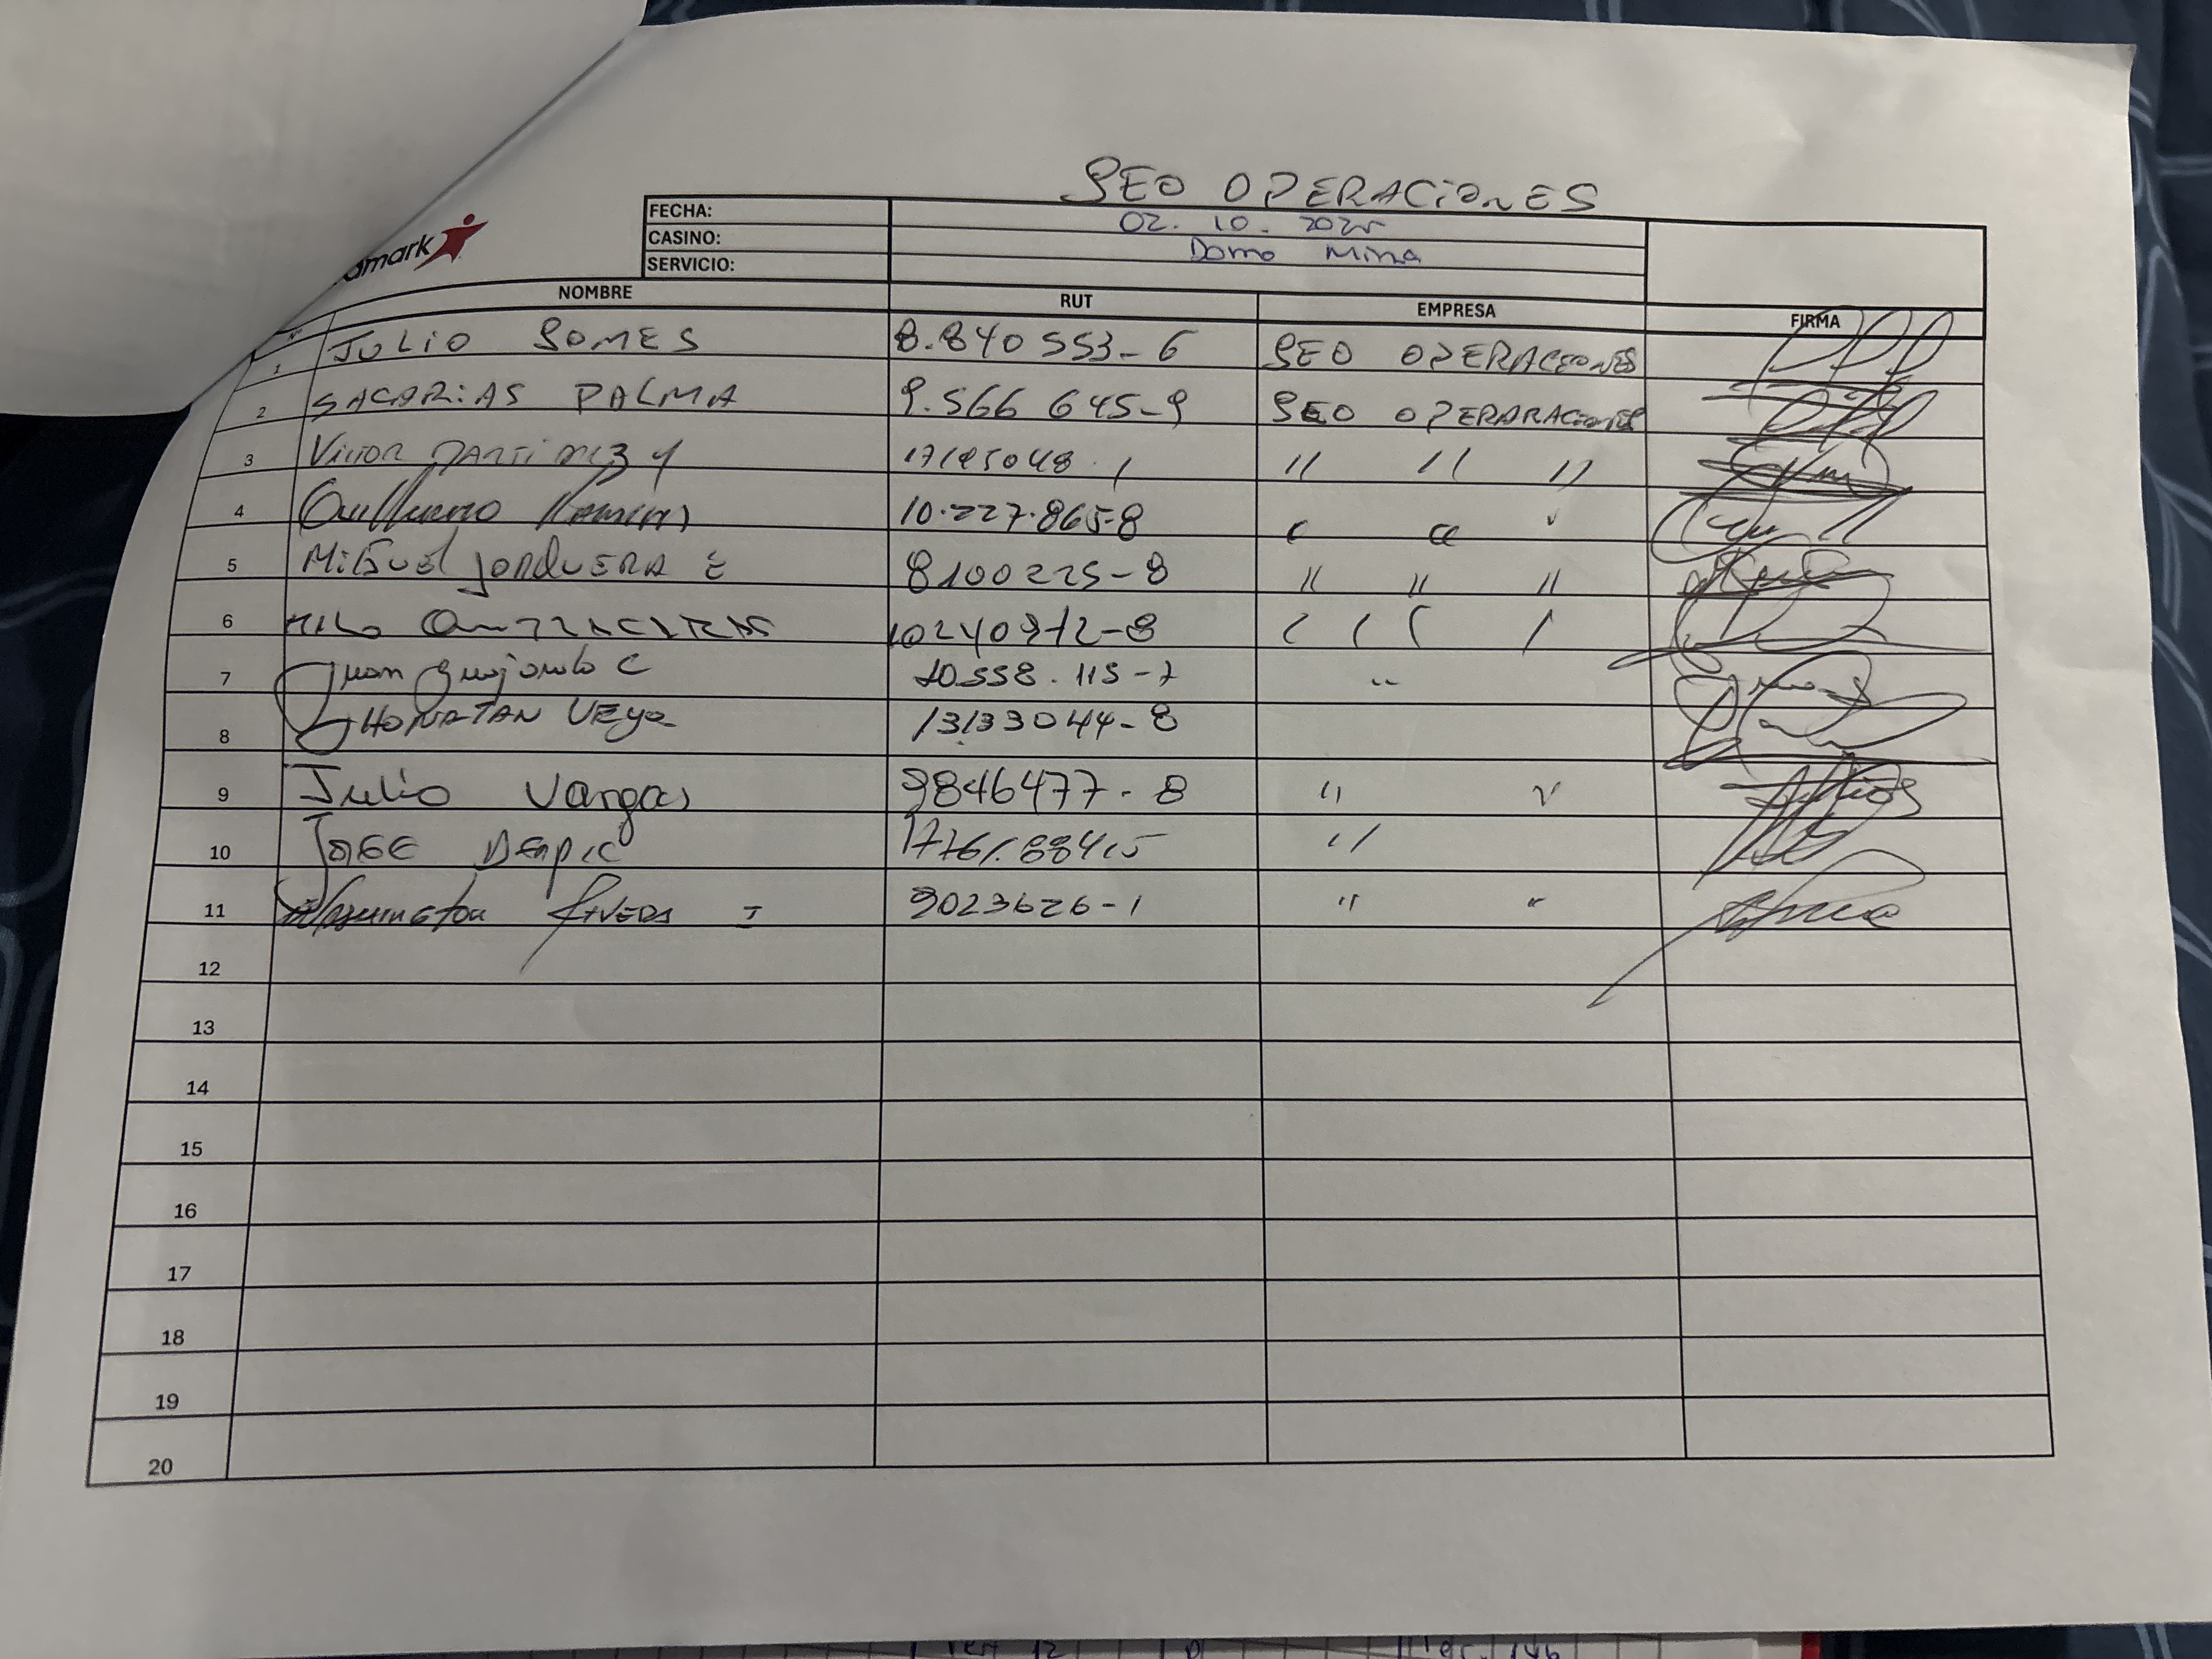 SEO OPERACIONES
amark
FECHA: 02.10.2025
CASINO: Domo Mina
SERVICIO:
NOMBRE RUT EMPRESA FIRMA
1 JULIO GOMES 8.840553-6 SEO OPERACIONES
2 SACARiAS PALMA 9.566 645-9 SEO OPERARACIONES
3 Victor MARTINEZ 17185048.1 " " "
4 Guillermo Ramirez 10.227.865-8 " "
5 MiGUEl JORQUERA E 8100225-8 " " "
6 10240912-8
7 Juan Guajardo C 10.558.115-7 "
8 JHONATAN VEga 13133044-8
9 Julio Vargas 9846477-8 " "
10 JOSE 1776188415 "
11 Washington RIVERA I 9023626-1 " "
12
13
14
15
16
17
18
19
20